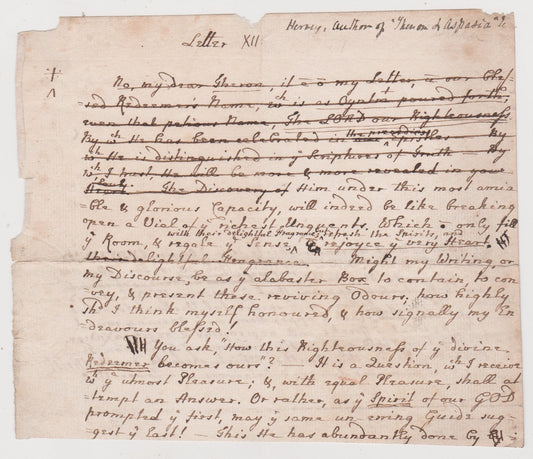 Hervey, Author of "Theron & Aspasia" &c
Letter XII
No, my dear Theron, it is not my Letter, is our Bles-
sed Redeemer's Name, wch is as Oyntmt poured forth,
even that precious Name, The LORD our Righteousness.
By wch He has been celebrated in the preceding Epistles — By
wch He is distinguished in ye Scriptures of Truth — By
wch I trust, He will be more & more revealed in your
Heart. The Discovery of Him under this most amia-
ble & glorious Capacity, will indeed be like breaking
open a Vial of ye richest Unguents. Which not only fill
ye Room, & regale ye Sense, with their delightful Fragrance; but refresh the Spirits, and
rejoyce ye very Heart.
Might my Writing, or
my Discourse, be as ye alabaster Box to contain, to con-
vey, & present these reviving Odours, how highly
shd I think myself honoured, & how signally my En-
deavours blessed!
You ask, "How this Righteousness of ye divine
Redeemer becomes ours"? — It is a Question, wch I receive
wth ye utmost Pleasure, &, with equal Pleasure, shall at-
tempt an Answer. Or rather, as ye Spirit of our GOD
prompted ye first, may ye same un-erring Guide sug-
gest ye last! — This He has abundantly done by